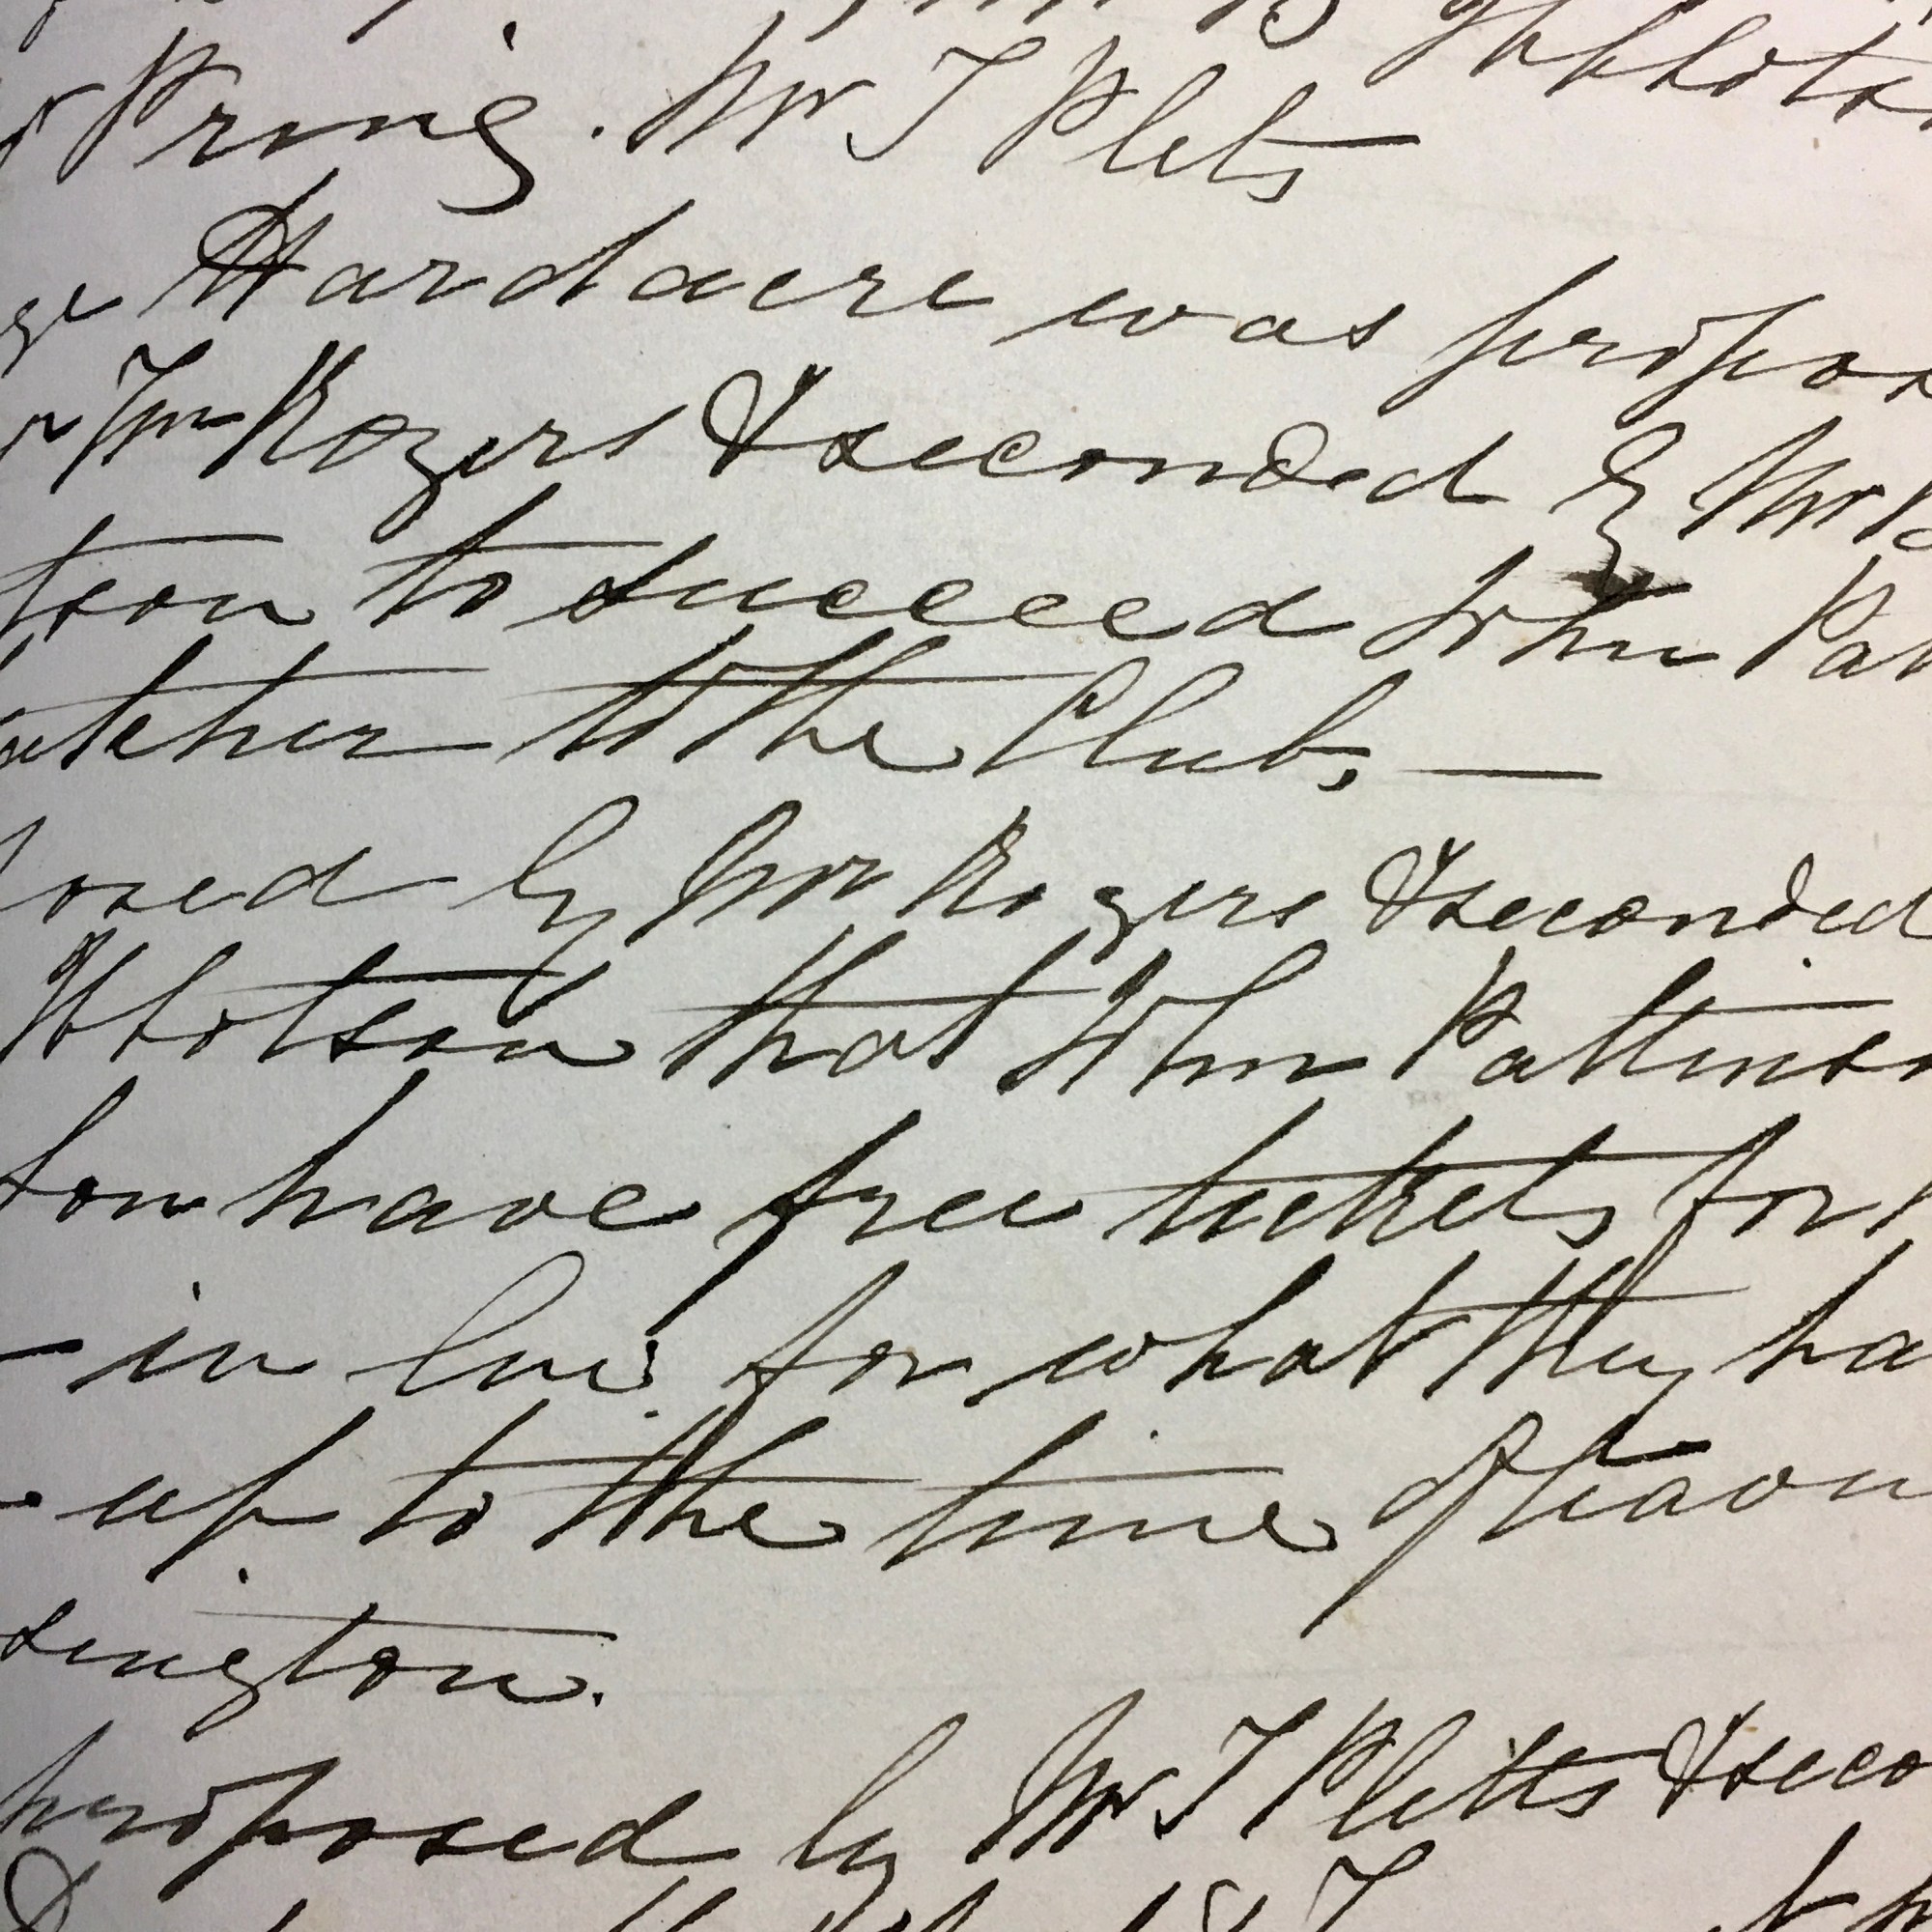 Pring. Mr T Plets
ge Hardacre was propos
r Wm Rogers & seconded by Mr B
tson to succeed John Pat
atcher to the Club, —
osed by Mr Rogers & seconded
Ibbotson that John Pattinso
Son have free tickets for
- in lieu for what they ha
- up to the time of leavin
sington.
proposed by Mr T Pletts & seco